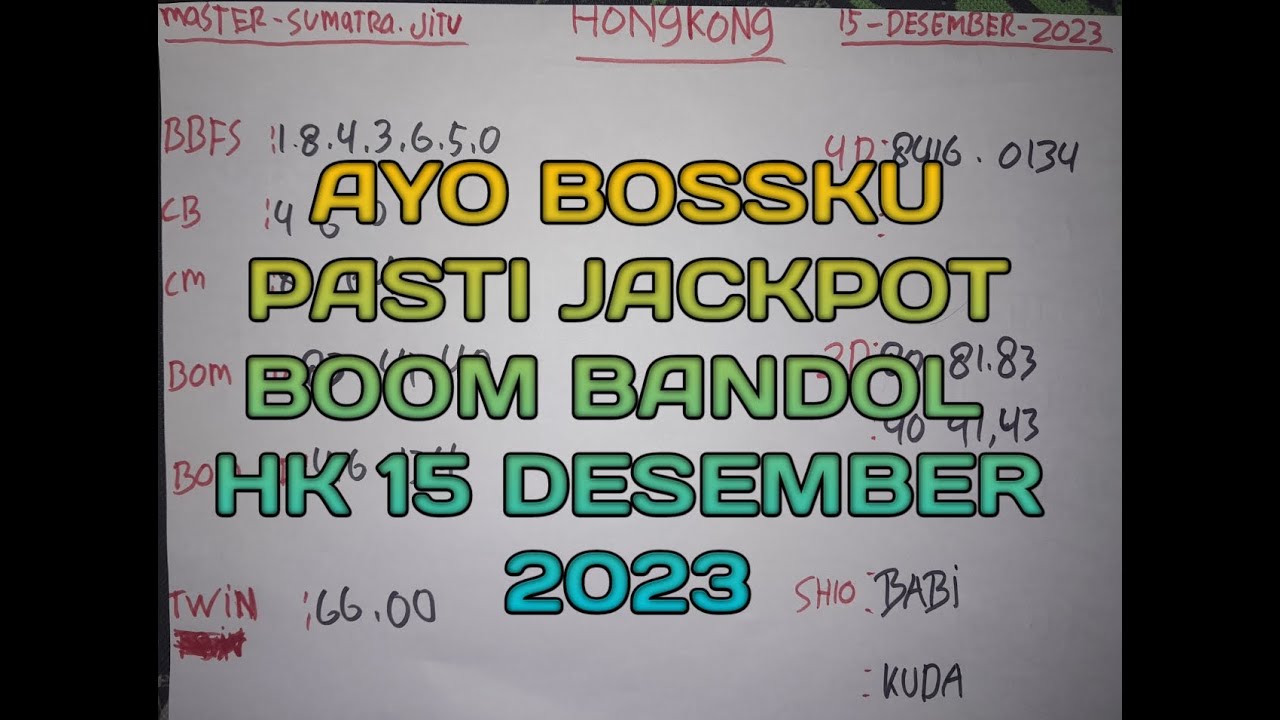 MASTER-SUMATRA.JITU HONGKONG 15-DESEMBER-2023
BBFS :1.8.4.3.6.5.0 4D:8416.0134
AYO BOSSKU
CB :4 6
PASTI JACKPOT
CM
BOOM BANDOL
BOM 2D: 81.83
40 41,43
HK 15 DESEMBER
2023
TWIN :66.00 SHIO :BABI
:KUDA